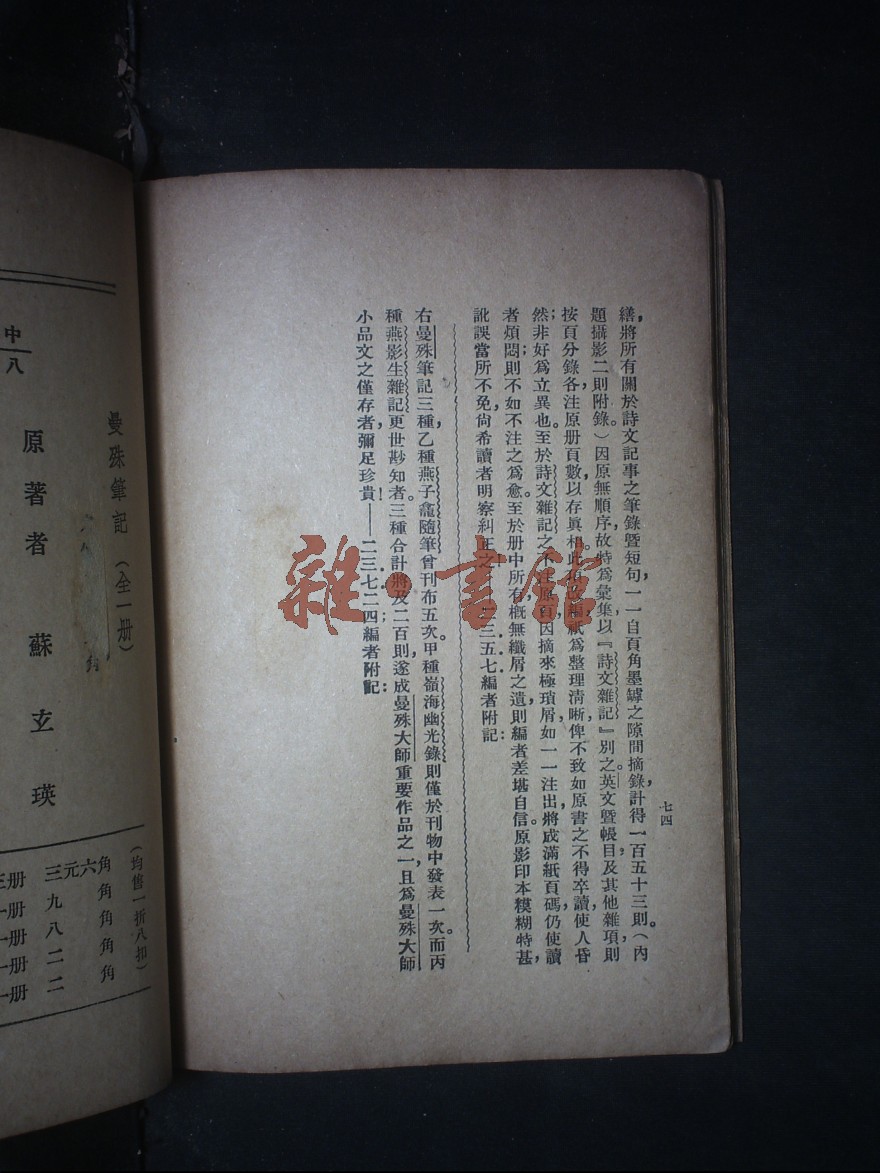 七四
繕，將所有關於詩文記事之筆錄暨短句，一一自頁角墨罅之隙間摘錄，計得一百五十三則。（內
題攝影二則附錄。）因原無順序，故特爲彙集以『詩文雜記』別之。英文暨帳目，及其他雜項，則
按頁分錄，各注原册頁數，以存眞相。此項編紙爲整理淸晰，俾不致如原書之不得卒讀，使人昏
然；非好爲立異也。至於詩文雜記之不注原頁，因摘來極瑣屑，如一一注出，將成滿紙頁碼，仍使讀
者煩悶；則不如不注之爲愈。至於册中所有，槪無纖屑之遺，則編者差堪自信。原影印本糢糊特甚，
訛誤當所不免，尙希讀者明察糾正之。二三．五．七．編者附記：
右曼殊筆記三種，乙種燕子龕隨筆曾刊布五次。甲種嶺海幽光錄則僅於刊物中發表一次。而丙
種燕影生雜記更世尠知者。三種合計將及二百則，遂成曼殊大師重要作品之一，且爲曼殊大師
小品文之僅存者，彌足珍貴！——二三．七．二四．編者附記：
中
八
曼殊筆記（全一册）
原著者 蘇玄瑛
（均售一折八扣）
三册 三元六角
一册 九角
一册 八角
一册 二角
一册 二角
雜·書館